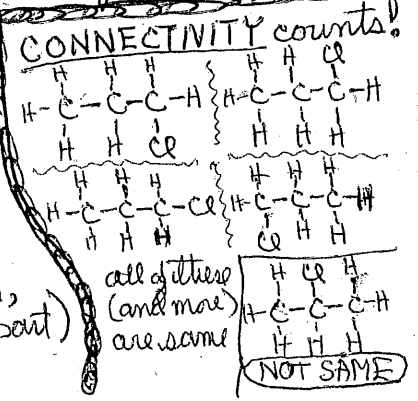 CONNECTIVITY counts!
H H H
H-C-C-C-H
H H Cl
H H Cl
H-C-C-C-H
H H H
H H H
H-C-C-C-Cl
H H H
H H H
H-C-C-C-H
Cl H H
all of these
(and more)
are same
H Cl H
H-C-C-C-H
H H H
NOT SAME